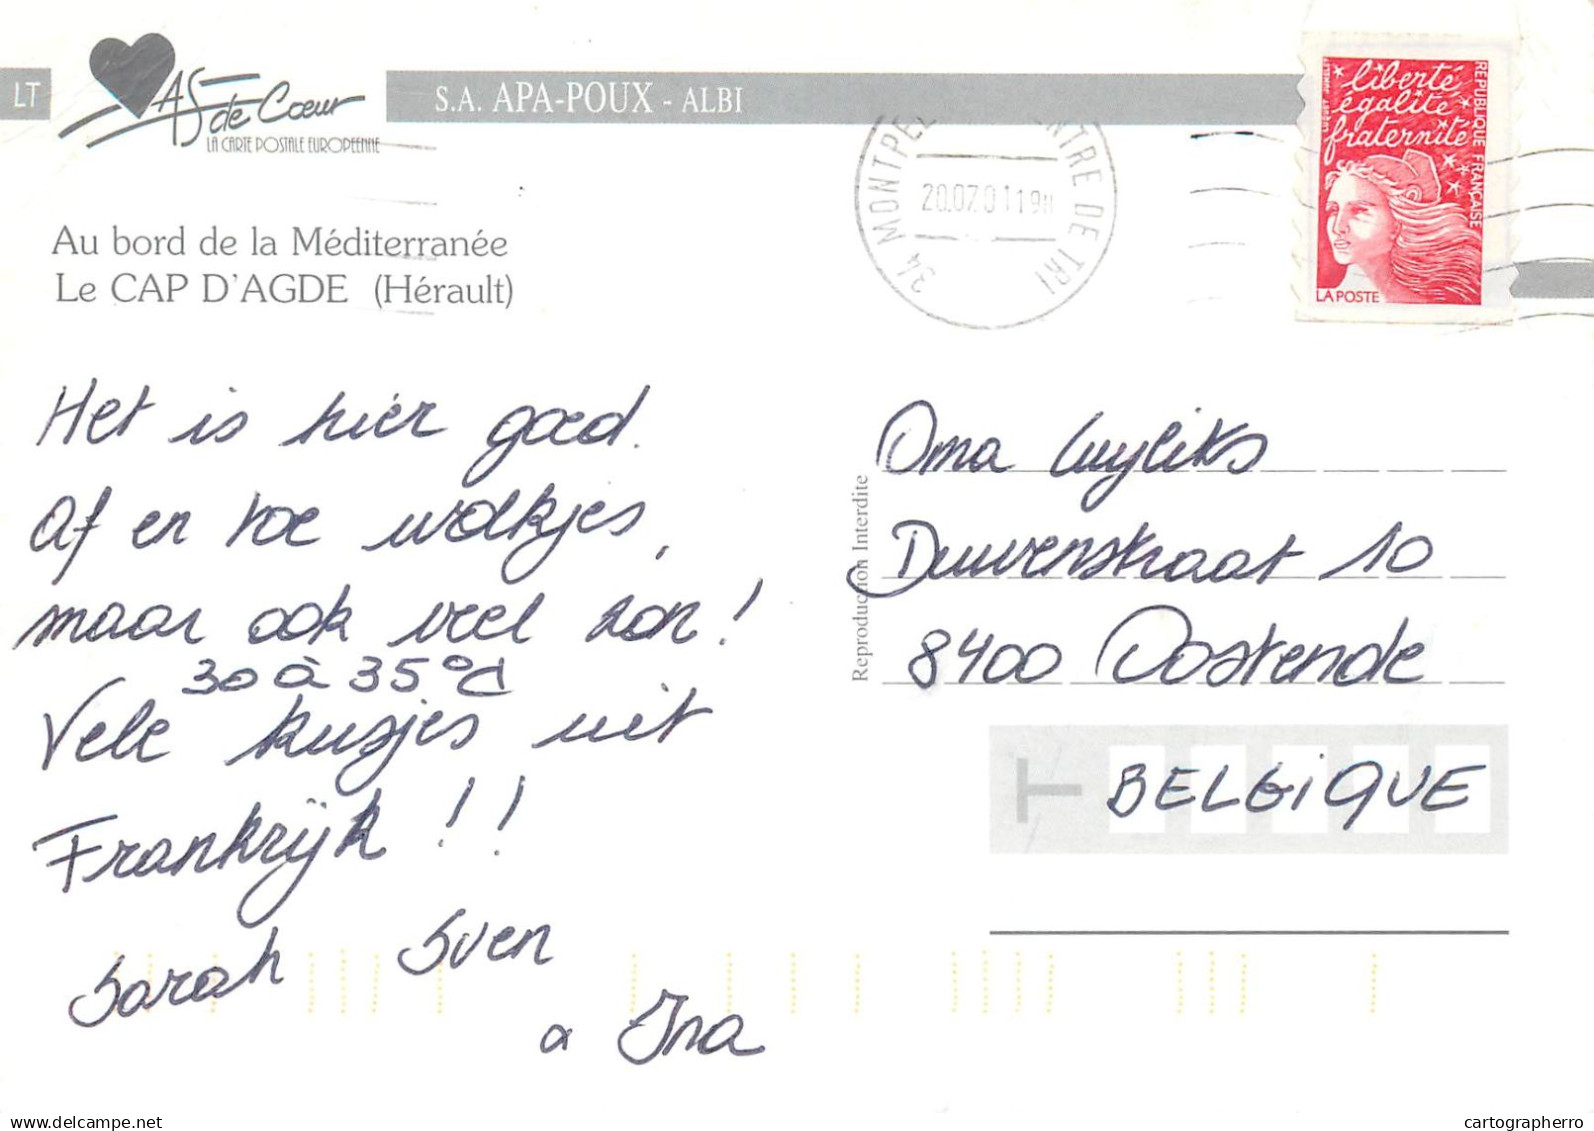 LT
AS de Coeur
LA CARTE POSTALE EUROPEENNE
S.A. APA-POUX - ALBI
Au bord de la Méditerranée
Le CAP D'AGDE (Hérault)
34 MONTPE NTRE DE TRI
20.07.01 19H
liberté
égalité
fraternité
REPUBLIQUE FRANÇAISE
LA POSTE
Het is hier goed.
Af en toe wolkjes,
maar ook veel zon!
30 à 35°C
Vele kusjes uit
Frankrijk !!
Sarah Sven
& Ina
Reproduction Interdite
Oma
Duivenstraat 10
8400 Oostende
BELGIQUE
cartographerro